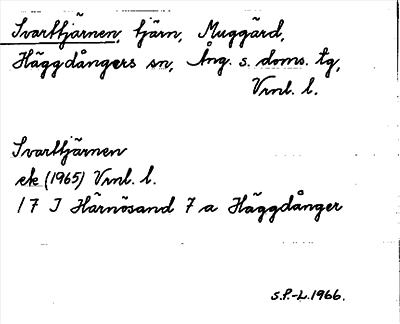 Svarttjärnen, tjärn, Muggärd,
Häggdångers sn, Ång. s. doms. tg,
Vrnl. l.
Svarttjärnen
ek (1965) Vrnl. l.
17 I Härnösand 7 a Häggdånger
S.P.-L. 1966.